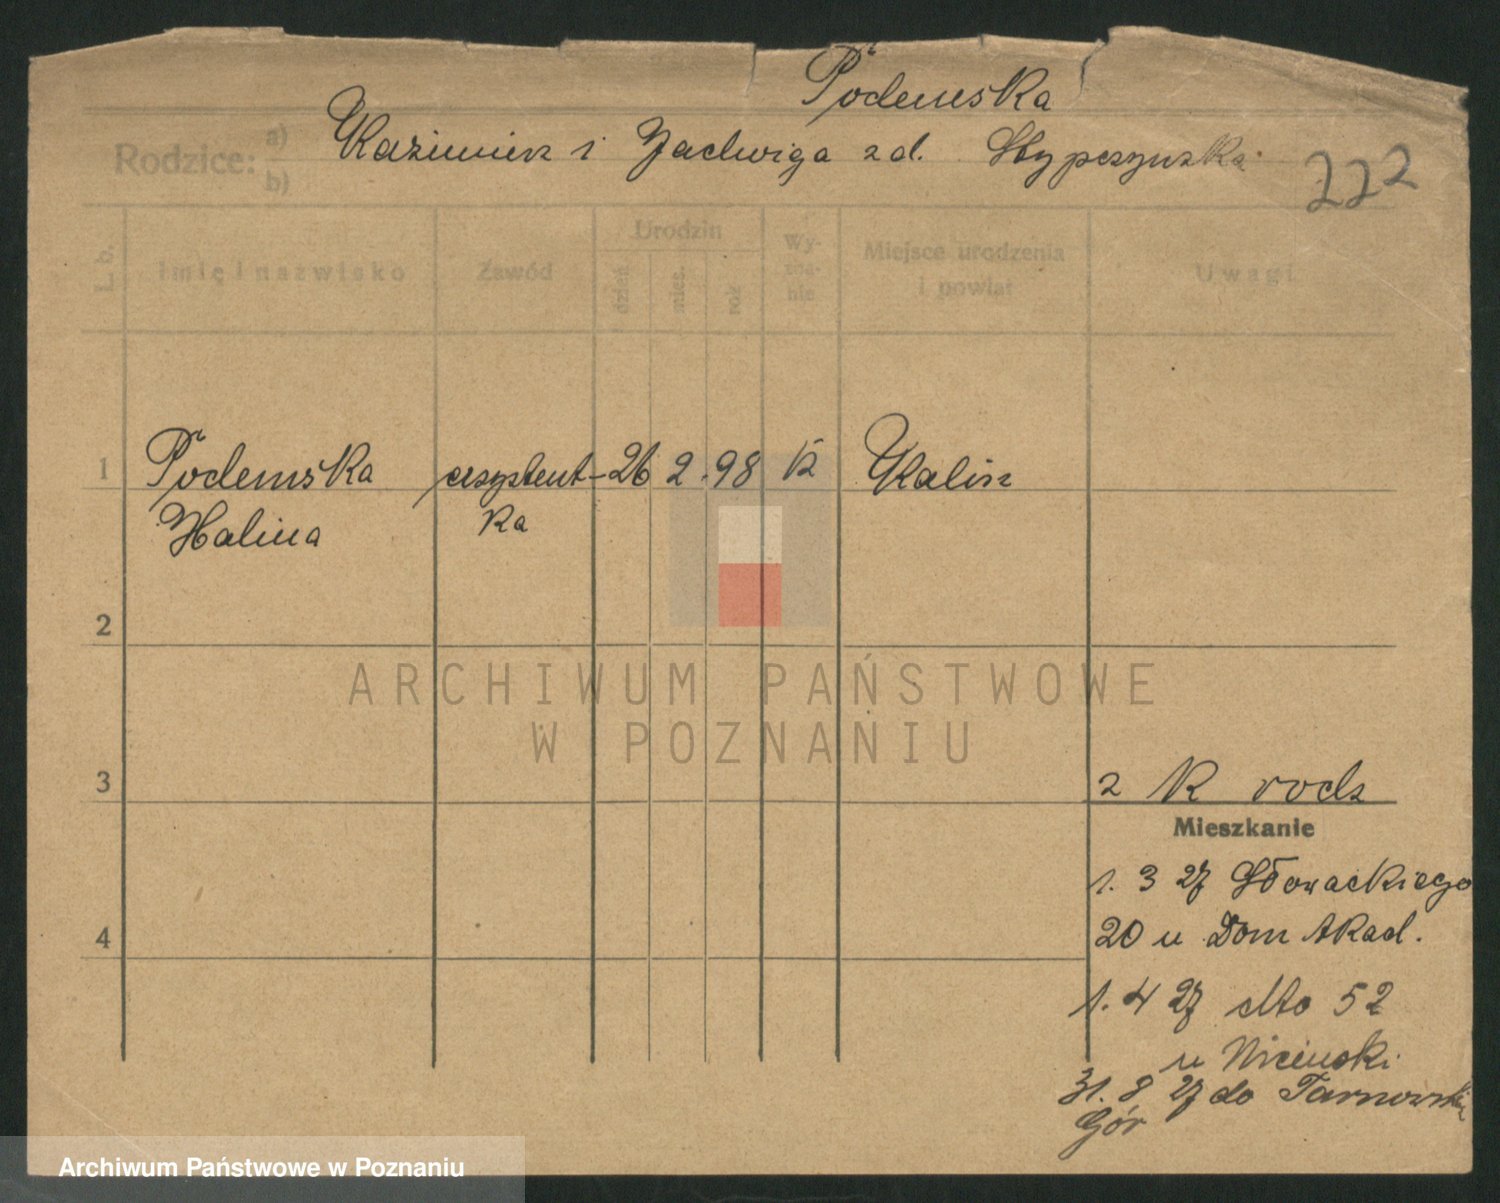 Podemska
Rodzice: a) Kazimierz i Jadwiga z d. Stypczyńska
b)
222
L. b.
Imię i nazwisko
Zawód
Urodzin
dzień
mies.
rok
Wy-
zna-
nie
Miejsce urodzenia
i powiat
Uwagi
1 Podemska asystent- 26 2. 98 K Kalisz
Halina ka
2
3
4
z K rodz
Mieszkanie
1. 3 27 Słowackiego
20 u Dom Akad.
1. 4 27 dtto 52
u
31. 8 27 do Tarnowskich
Gór
ARCHIWUM PAŃSTWOWE
W POZNANIU
Archiwum Państwowe w Poznaniu